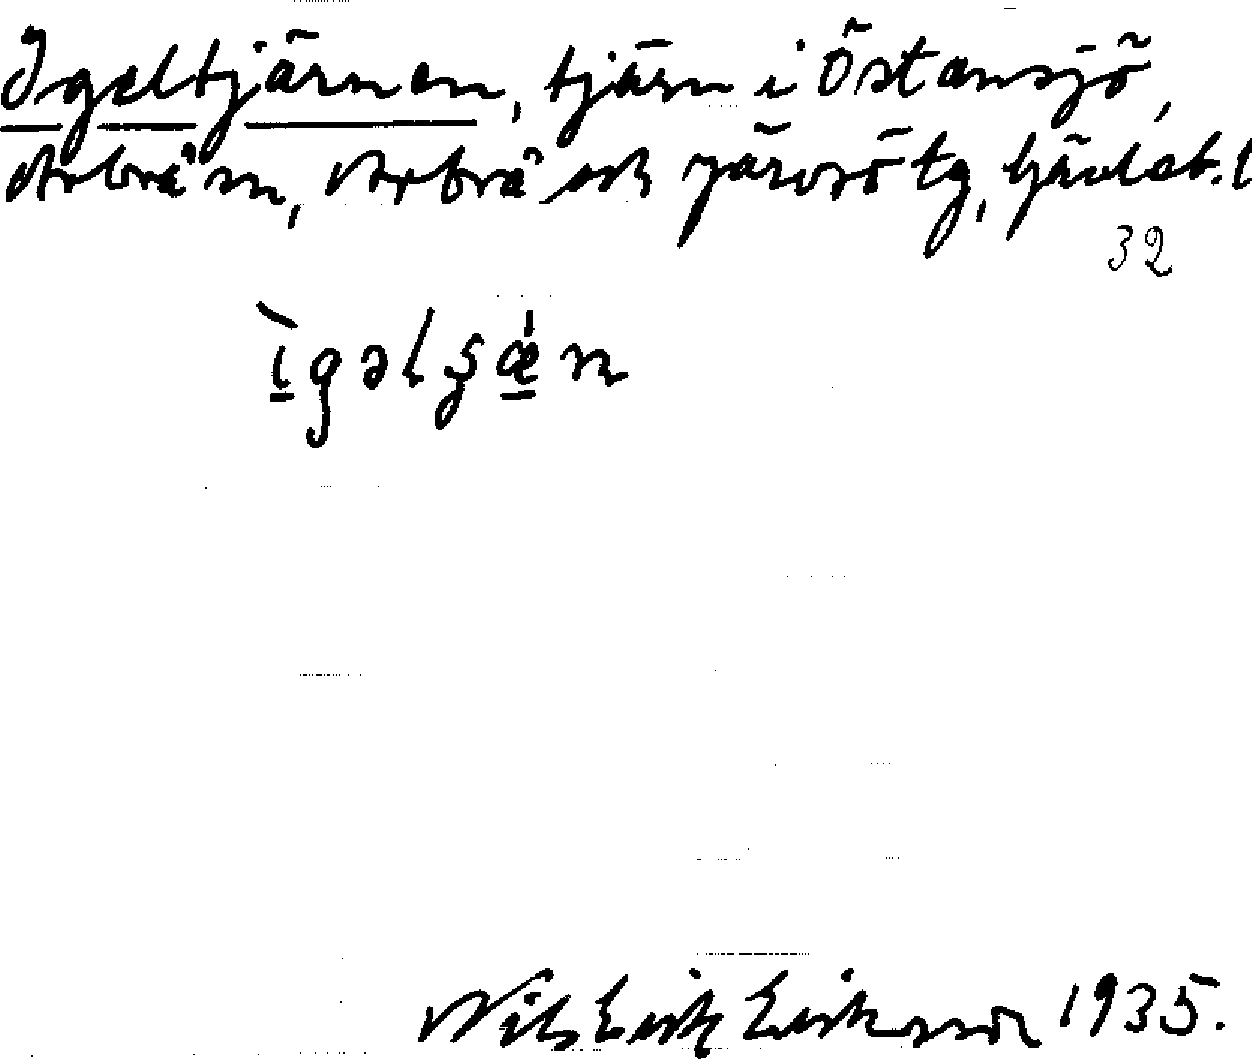 Igeltjärnen, tjärn i Östansjö,
Arbrå sn, Arbrå och Järvsö tg, Gävleb. l
32
ìgəlʂǽn
Nils Erik Eriksson 1935.